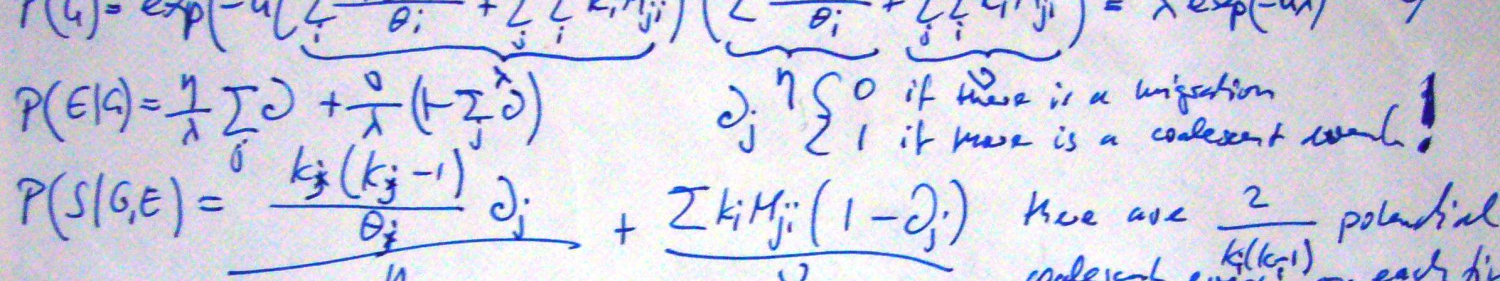 P(G) = exp(-u(∑_i θ_i + ∑_j ∑_i k_i M_ji)) (∑ θ_i + ∑_j ∑_i M_ji) = λ exp(-uλ)
P(E|G) = η/λ ∑_j ∂ + ν/λ (1-∑_j ∂) ∂_j { 0 if there is a migration
1 if there is a coalescent event !
P(S|G,E) = k_j(k_j-1)/θ_j ∂_j + ∑ k_i M_ji (1-∂_j) there are 2/k_i(k_i-1) potential
η ν coalescent on each